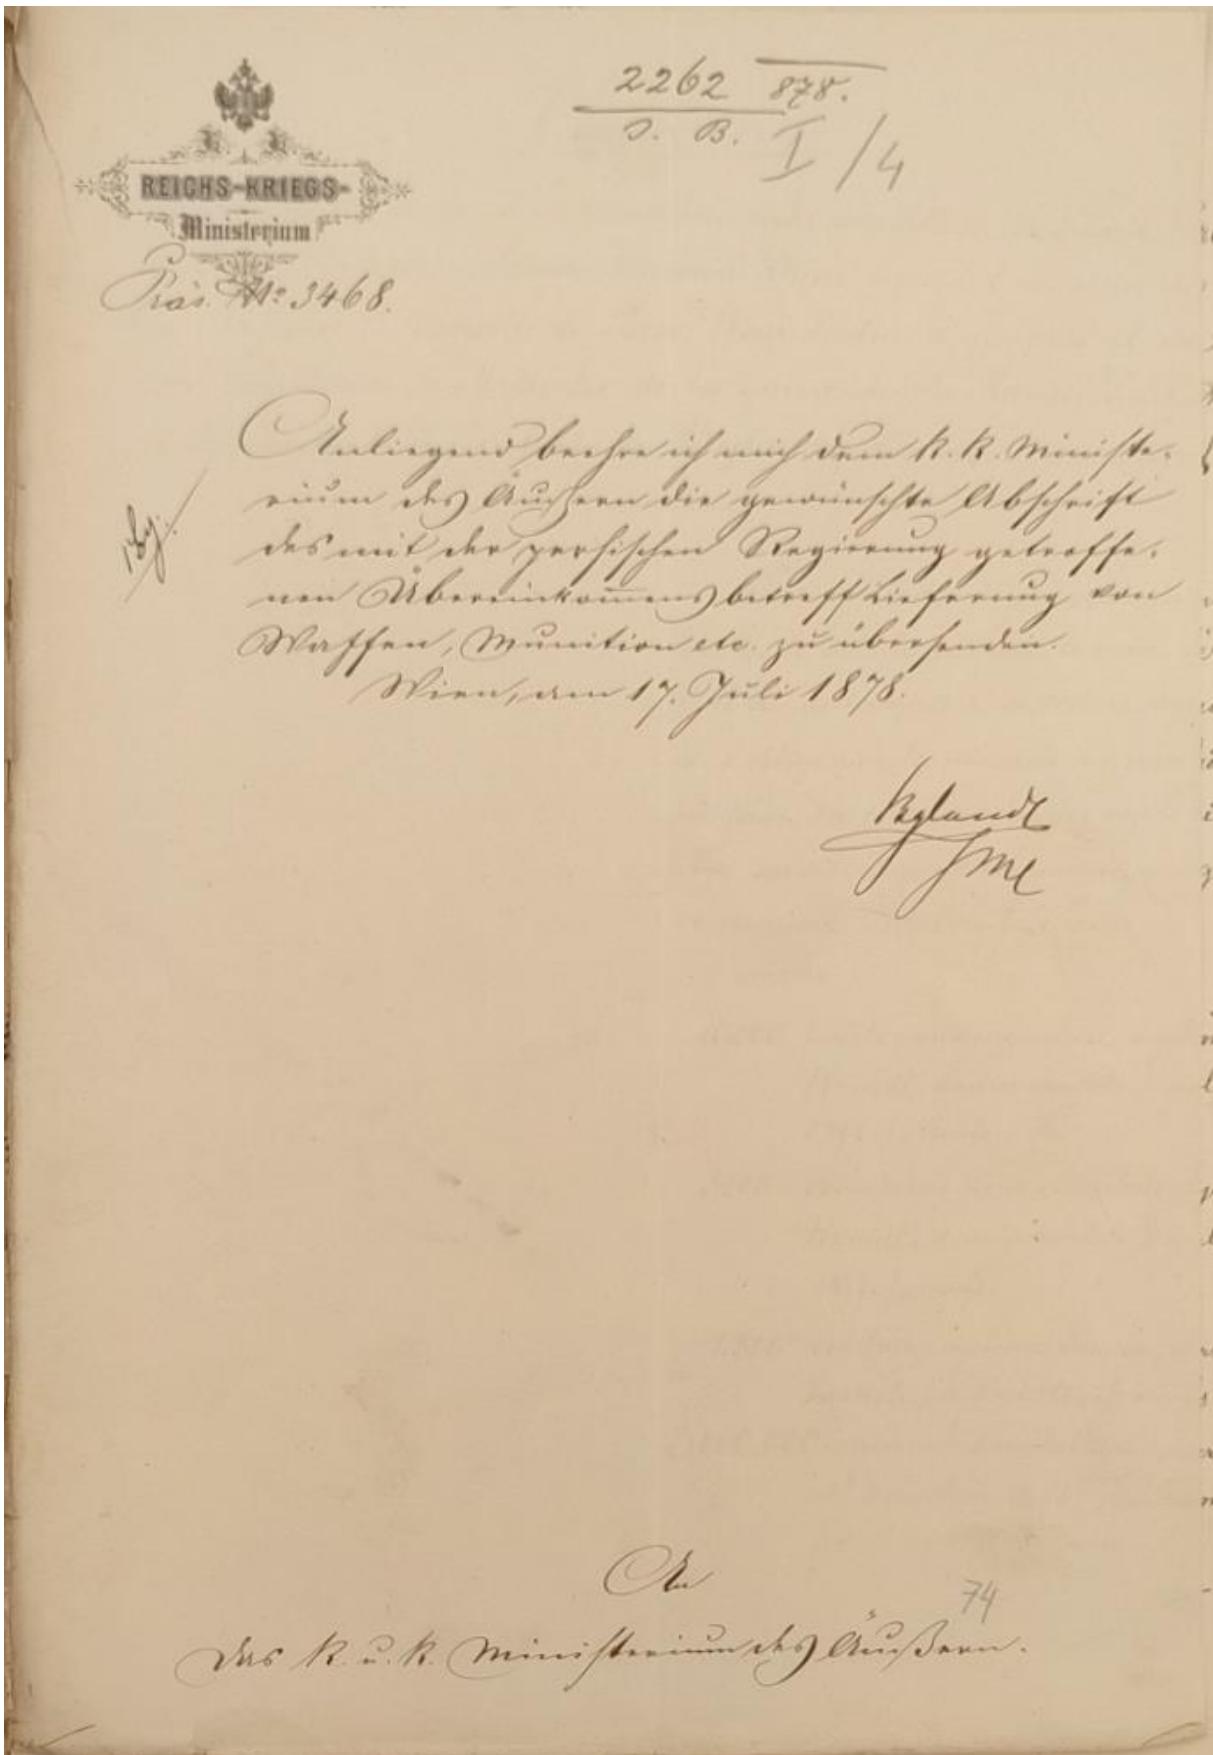 2262 878.
I/4
K. K.
REICHS-KRIEGS-
Ministerium
Präs. No 3468.
Anliegend beehre ich mich dem k. k. Ministe-
rium des Äußern die gewünschte Abschrift
des mit der persischen Regierung getroffe-
nen Übereinkom̅ens betreff Lieferung von
Waffen, Munition etc. zu übersenden.
Wien, am 17. Juli 1878.
Bylandt
FML
An
74
das k. u. k. Ministerium des Äußern.